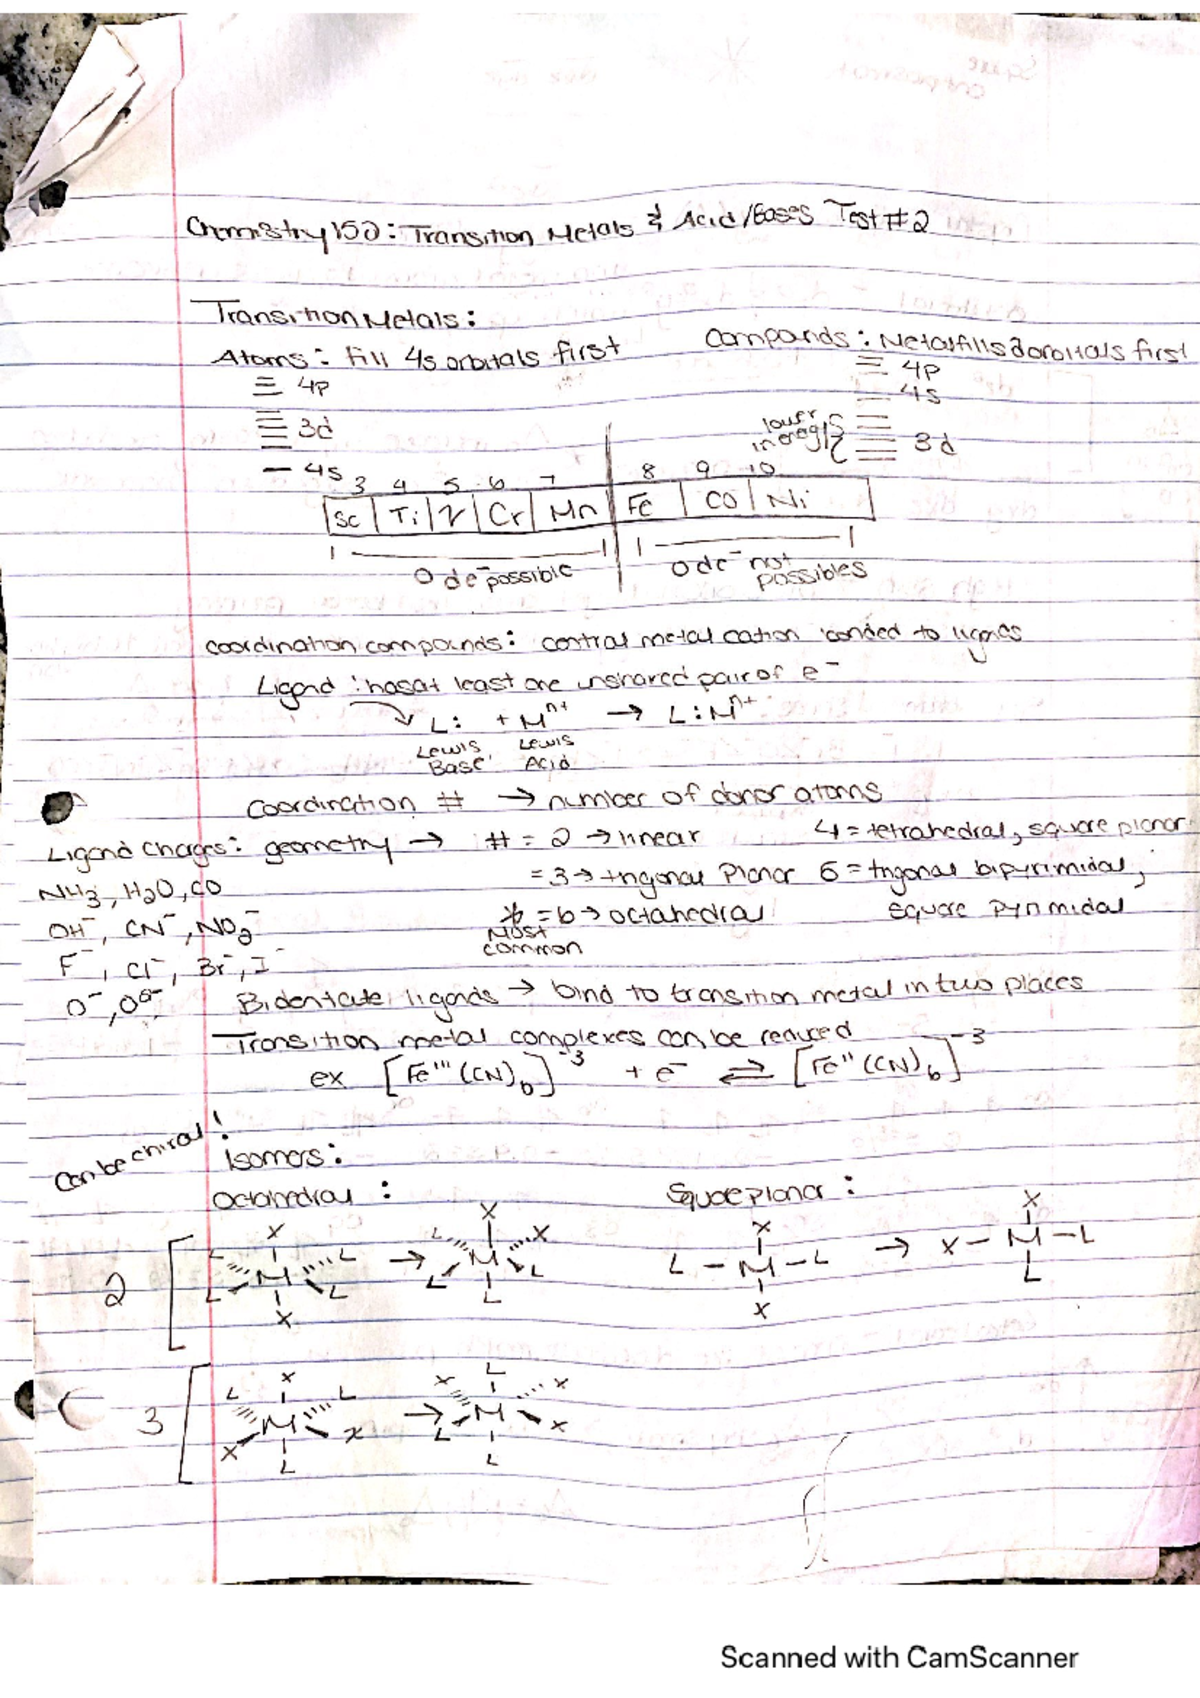 Chemistry 152: Transition Metals & Acid/Bases Test #2
Transition Metals:
Atoms: fill 4s orbitals first
Compounds: Metal fills d orbitals first
4p
4p
4s
3d
lower in energy
3d
4s
3 4 5 6 7 8 9 10
Sc Ti V Cr Mn Fe CO Ni
0 d e⁻ possible
0 d e⁻ not possibles
coordination compounds: central metal cation bonded to ligands
Ligand: has at least one unshared pair of e⁻
L: + Mⁿ⁺ → L:Mⁿ⁺
Lewis Base
Lewis Acid
Coordination # → number of donor atoms
Ligand Charges:
geometry → # = 2 → linear
4 = tetrahedral, square planar
NH3, H2O, CO
= 3 → trigonal Planar
5 = trigonal bipyrimidal,
OH⁻, CN⁻, NO2⁻
* = 6 → octahedral
square pyrimidal
Most common
F⁻, Cl⁻, Br⁻, I⁻
Bidentate ligands → bind to transition metal in two places
Transition metal complexes can be reduced
ex [Fe''' (CN)6]⁻³ + e⁻ ⇌ [Fe'' (CN)6]⁻³
Can be chiral!
Isomers:
Octahedral:
Square planar:
2
X L L M L L X → X L X M L L L
X L – M – L X → X X – M – L L
3
X L L M X X L → L X X M L X L
Scanned with CamScanner